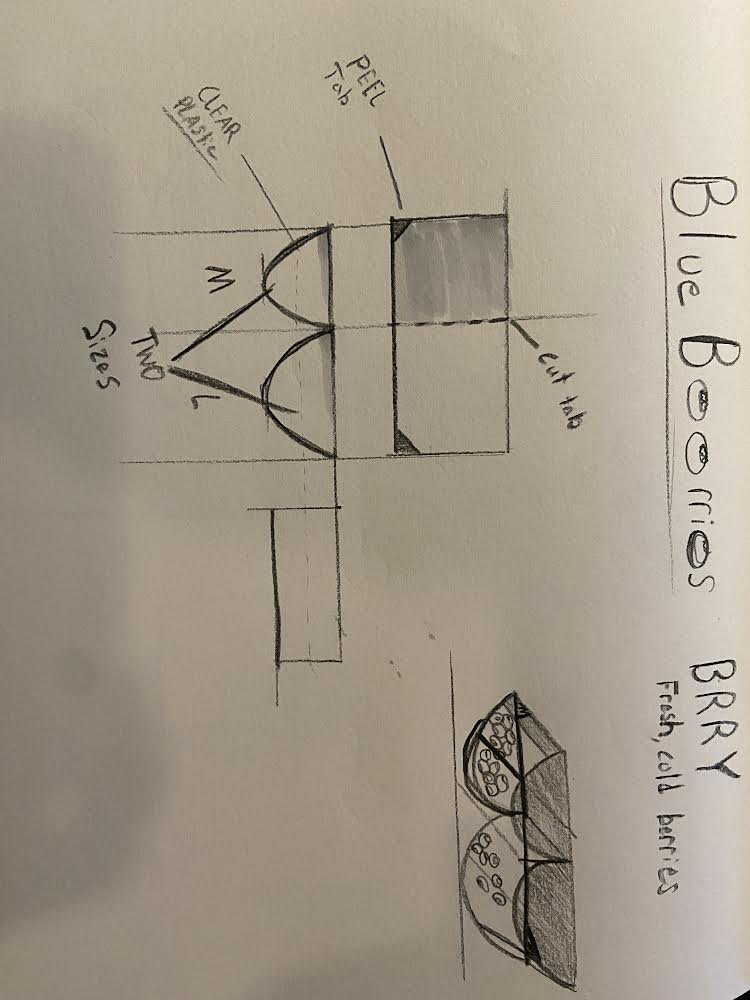 Blue Boorries
BRRY
Fresh, cold berries
PEEL
Tab
cut tab
CLEAR
PLAStic
M
L
TWO
Sizes